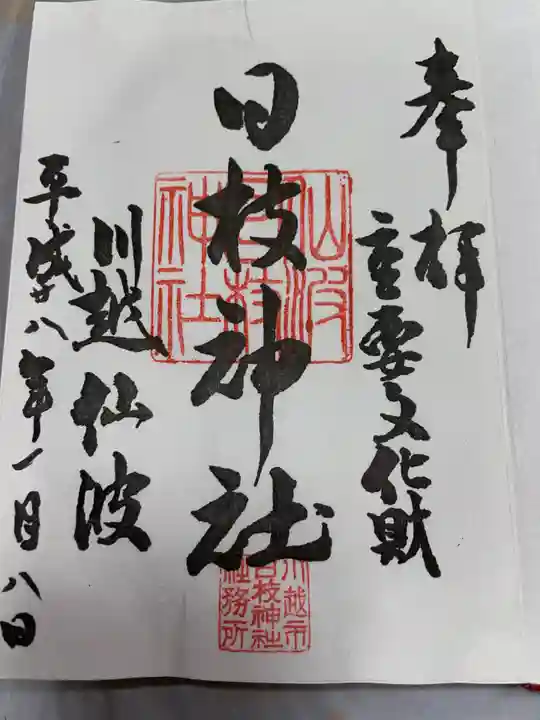 奉拝
重要文化財
日枝神社
仙波
日枝
神社
川越市
日枝神社
社務所
川越仙波
平成廿八年一月八日